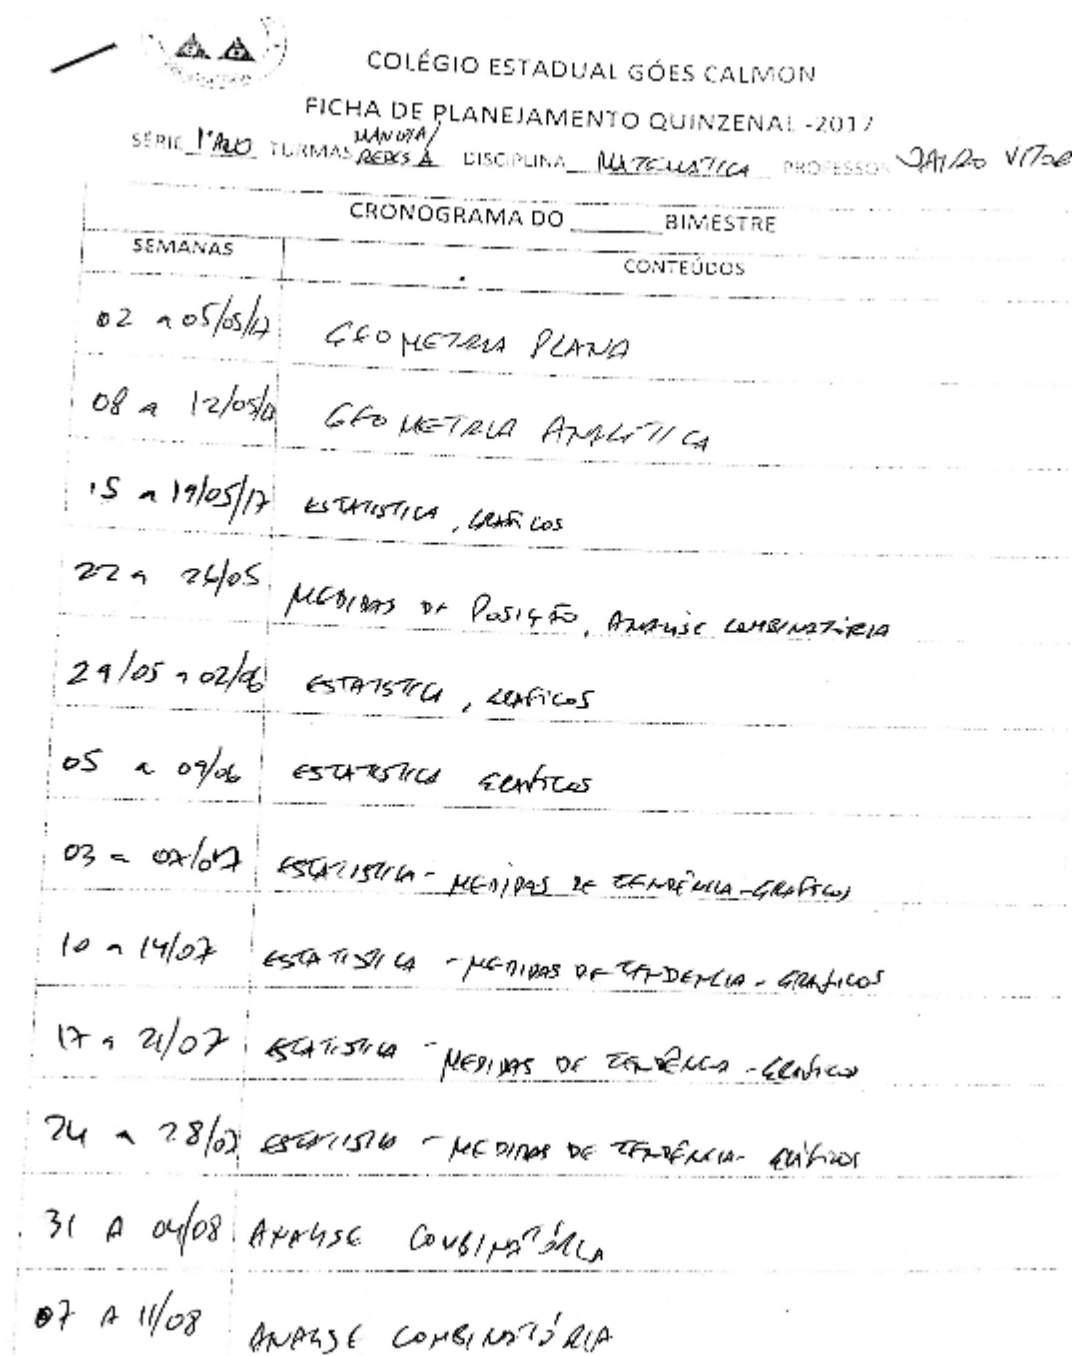 COLÉGIO ESTADUAL GÓES CALMON
FICHA DE PLANEJAMENTO QUINZENAL -2017
SÉRIE 1º ANO TURMAS REDES A DISCIPLINA MATEMÁTICA PROFESSOR JAIRO VITOR
CRONOGRAMA DO ______ BIMESTRE
SEMANAS CONTEÚDOS
02 a 05/05/17 GEOMETRIA PLANA
08 a 12/05/17 GEOMETRIA ANALÍTICA
15 a 19/05/17 ESTATISTICA, GRÁFICOS
22 a 26/05 MEDIDAS DE POSIÇÃO, ANALISE COMBINATÓRIA
29/05 a 02/06 ESTATISTICA, GRAFICOS
05 a 09/06 ESTATISTICA GRAFICOS
03 a 07/07 ESTATISTICA - MEDIDAS DE TENDÊNCIA - GRAFICOS
10 a 14/07 ESTATISTICA - MEDIDAS DE TENDENCIA - GRAFICOS
17 a 21/07 ESTATISTICA - MEDIDAS DE TENDÊNCIA - GRAFICOS
24 a 28/07 ESTATISTICA - MEDIDAS DE TENDÊNCIA - GRÁFICOS
31 A 04/08 ANALISE COMBINATÓRIA
07 A 11/08 ANALISE COMBINATÓRIA